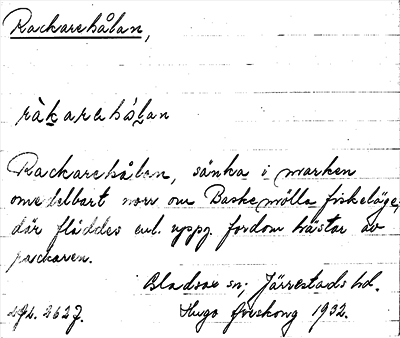 Rackarehålan,
råkarehǻlan
Rackarehålan, sänka i marken
omedelbart norr om Baskemölla fiskeläge,
där fläddes enl. uppg. fordom hästar av
rackaren.
Gladsax sn; Järrestads hd.
Hugo 1932.